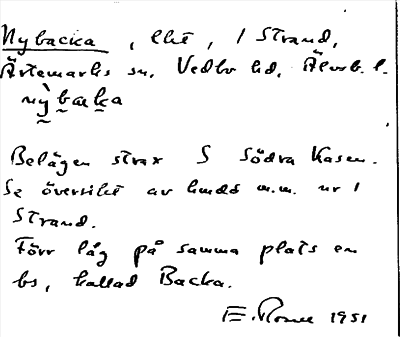 Nybacka, lht, 1 Strand,
Ärtemarks sn, Vedbo hd, Älvsb. l.
nỳbaka
Belägen strax S Södra Kasen.
Se översikt av hmds m.m. nr 1
Strand.
Förr låg på samma plats en
bs, kallad Backa.
E. 1951